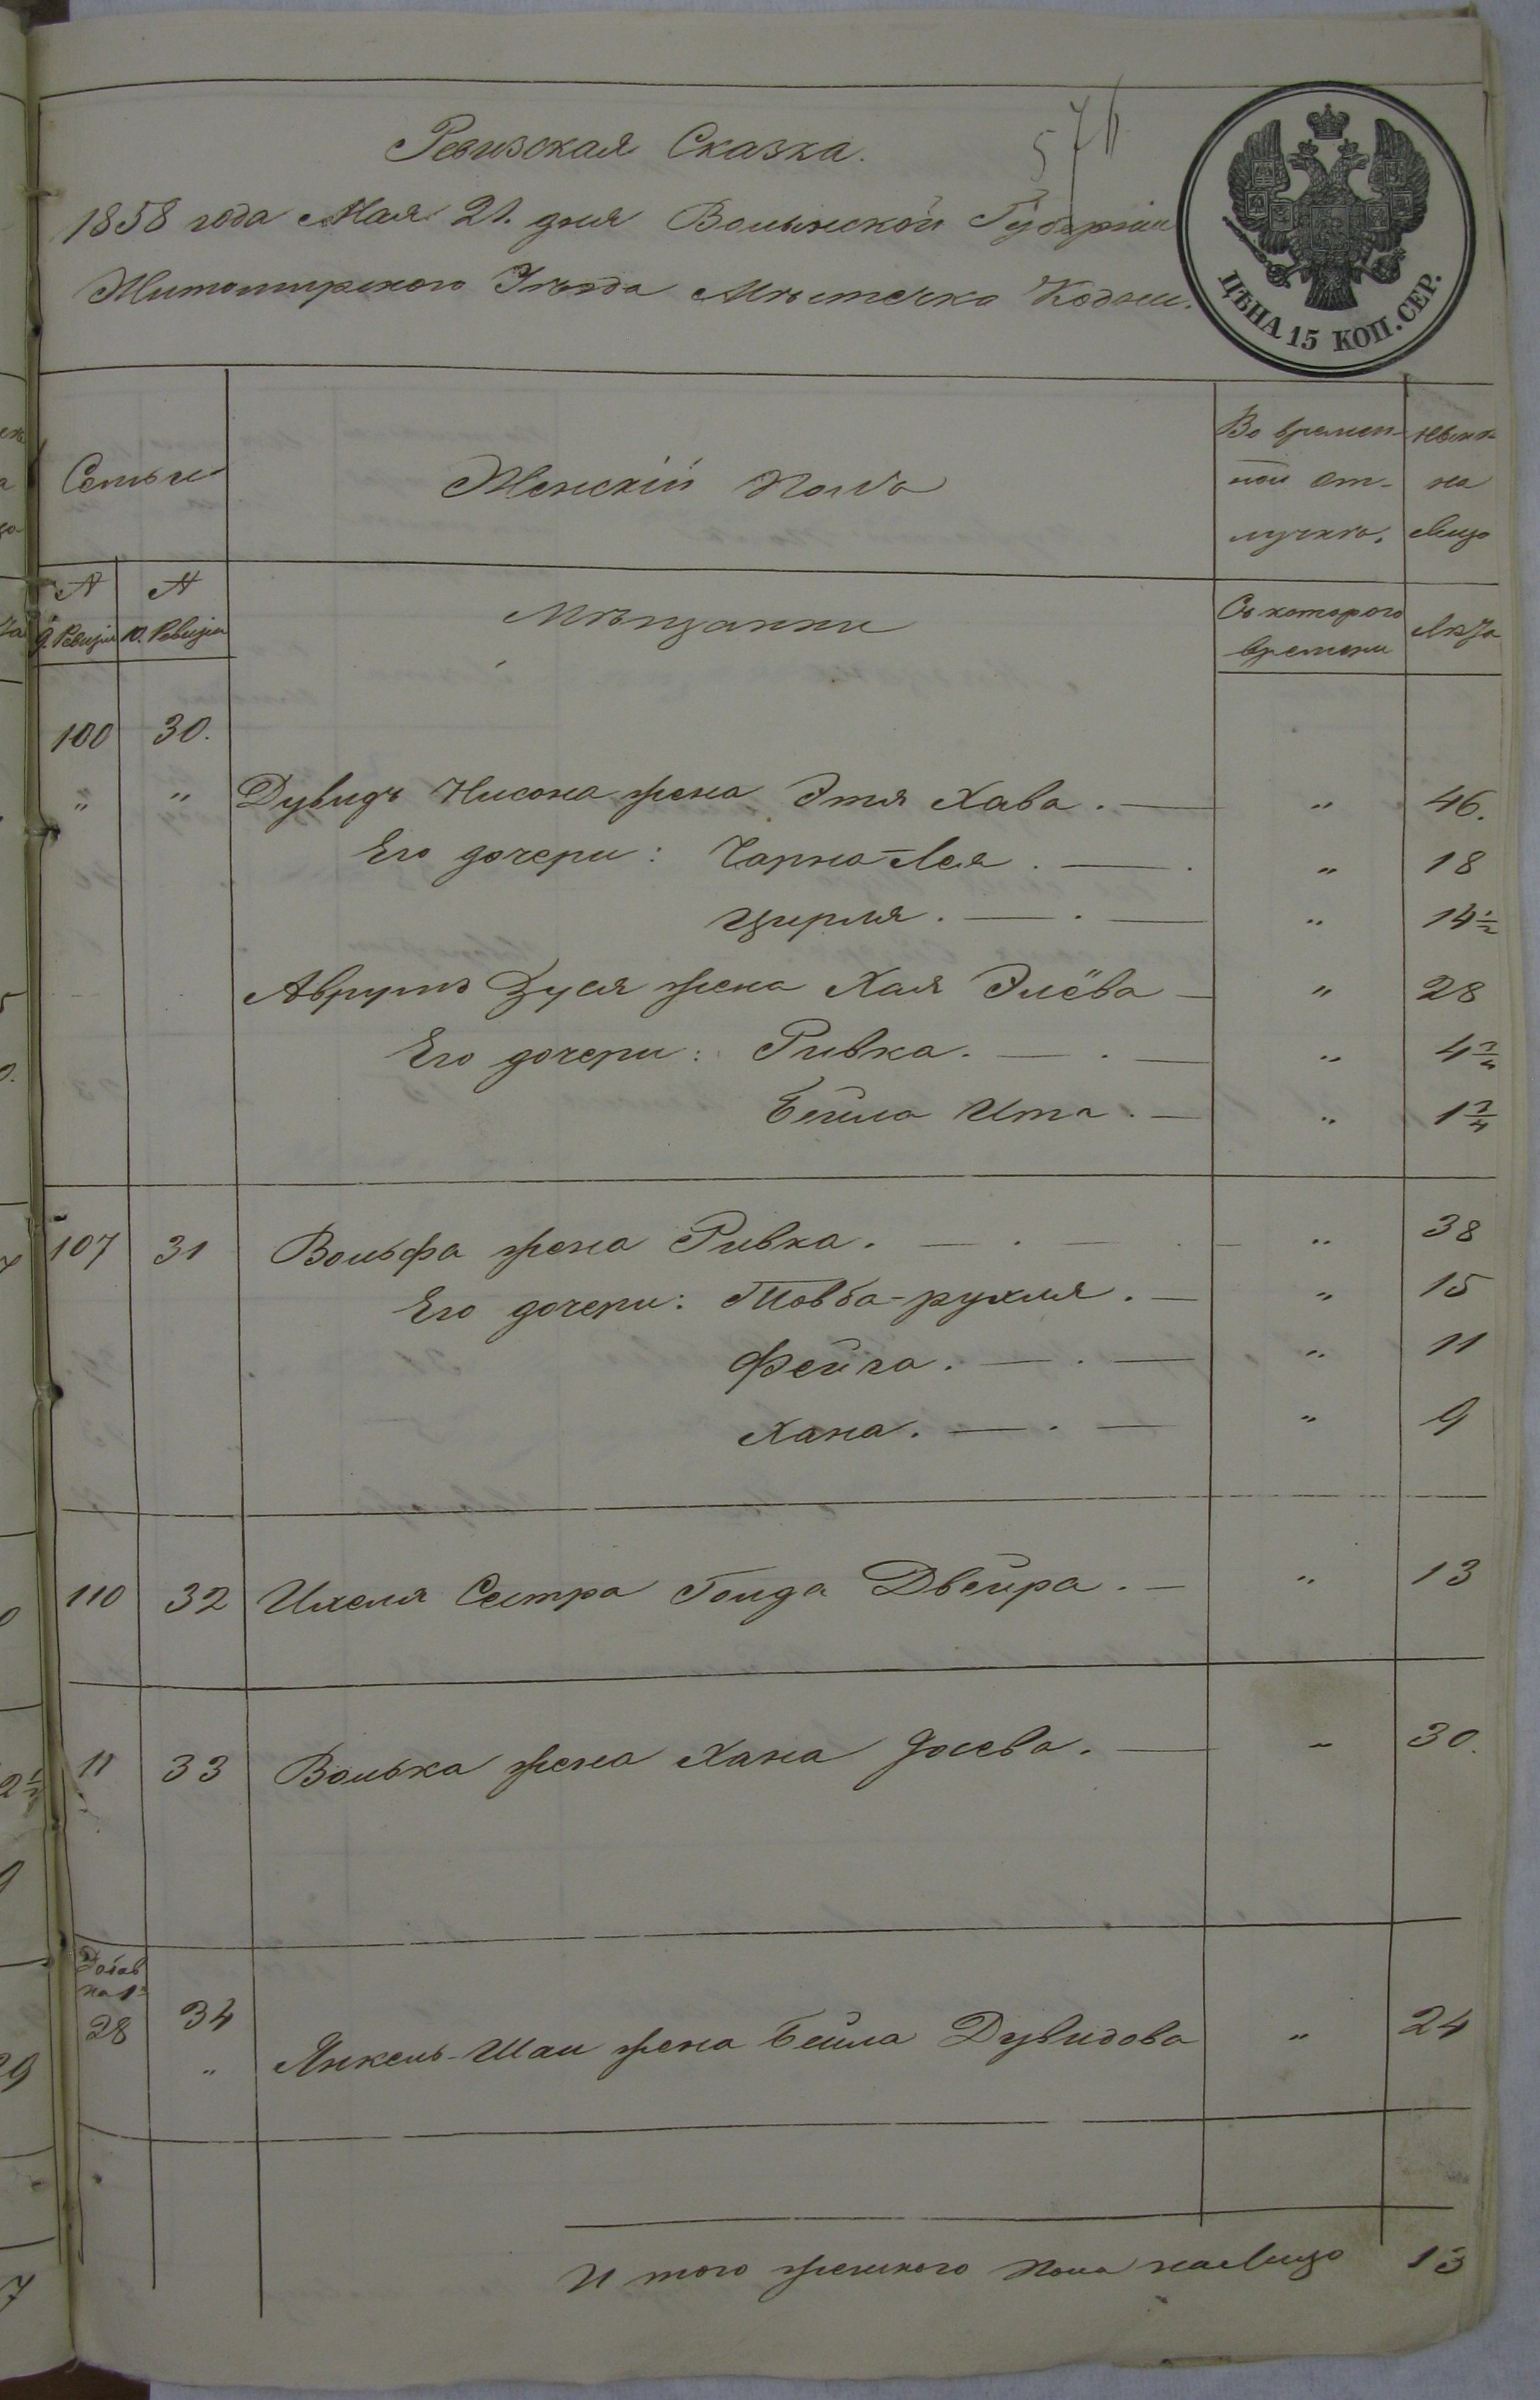 Ревизская Сказка.
57
1858 года Мая 21. дня Волынской Губерніи
Житомирского Уѣзда Мѣстечка Кодни.
ЦѢНА 15 КОП. СЕР.
Семьи
Женскій Полъ
Во времен-
ной от-
лучкѣ.
нынѣ
на
лицо
№ 9. Ревизіи
№ 10. Ревизіи
Мѣщанки
Съ которого
времени
Лѣта
100 30.
" " Дувидъ Нисона жена Этя Хава. — " 46.
Его дочери: Чарна-Лея. — . " 18
Цирля. — . — " 14 1/2
Аврумъ Зуся жена Хая Элёва — " 28
Его дочери: Ривка. — . — " 4 3/4
Бейла Ита. — " 1 3/4
107 31 Вольфа жена Ривка. — . — . — " 38
Его дочери: Товба-рухля. — " 15
Фейга. — . — " 11
Хана. — . — " 9
110 32 Ихеля Сестра Голда Двейра. — " 13
11 33 Волька жена Хана Іосева. — " 30.
Добав
на 1
28 34
" Янкель-Шаи жена Бейла Дувидова " 24
И того женского пола налицо 13